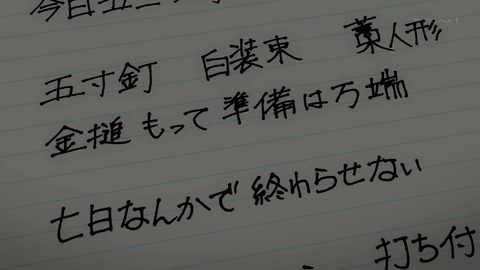 今日
五寸釘 白装束 藁人形
金槌もって準備は万端
七日なんかで終わらせない
打ち付